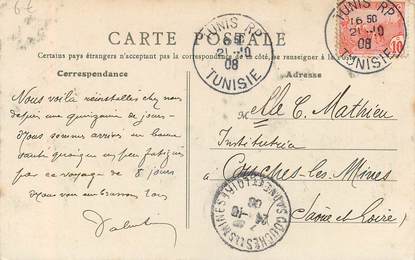 6€
TUNIS RP
16 50
21 -10
08
TUNISIE
TUNIS RP
16 50
21 -10
08
TUNISIE
10
CARTE POSTALE
Certains pays étrangers n'acceptant pas la correspondance de ce côté, se renseigner à la Poste
Correspondance
Adresse
Nous voilà réinstallés chez nous
depuis une quinzaine de jours -
Nous sommes arrivés en bonne
santé quoique un peu fatigués
par ce voyage de 8 jours
Nous vous embrassons tous
Melle C. Mathieu
Institutrice
Couches-les-Mines
Saône et Loire
COUCHES-LES-MINES
SAONE-ET-LOIRE